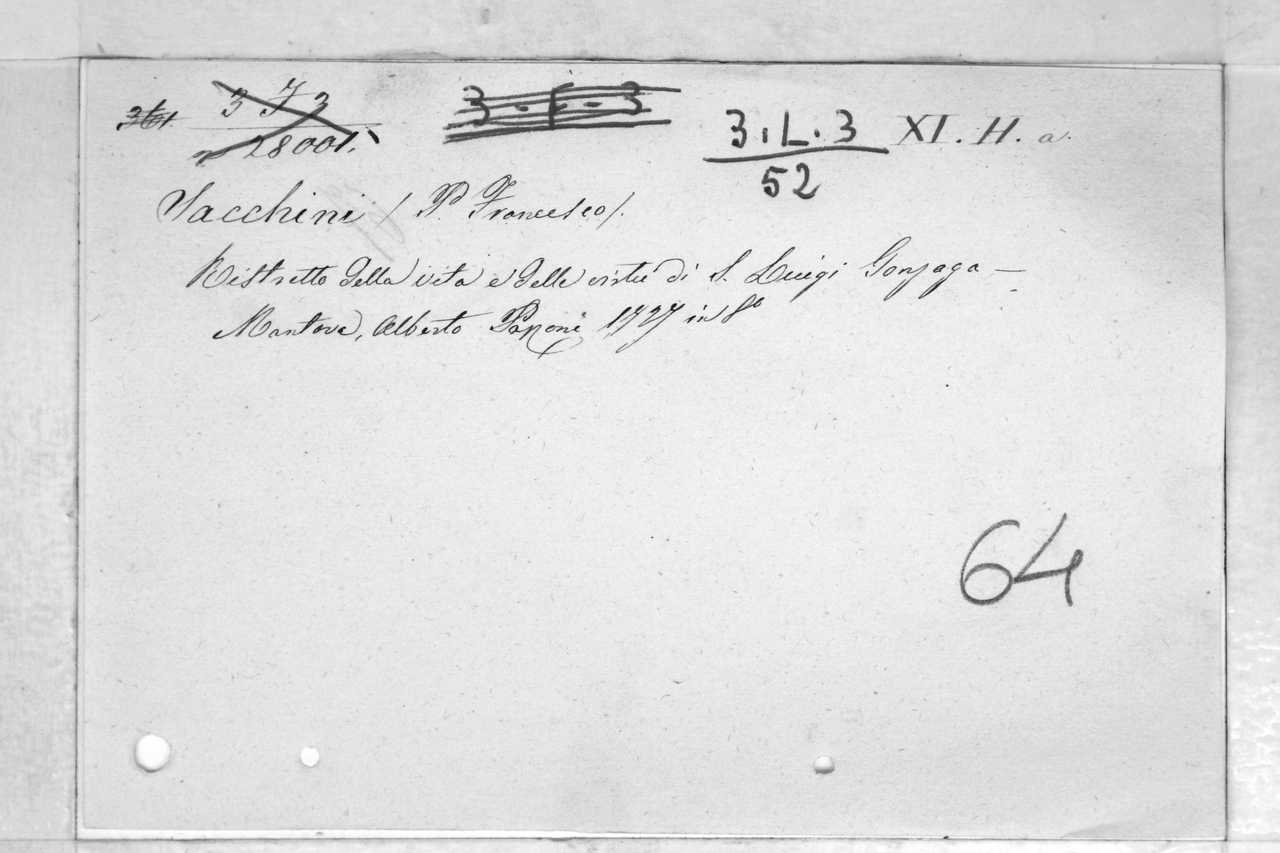 3 J 3
28001.
3 - E - 3
3. L. 3
52
XI. H. a.
Sacchini (P. Francesco).
Ristretto della vita e delle virtù di S. Luigi Gonzaga —
Mantova, Alberto Pazzoni 1727 in 8º
64